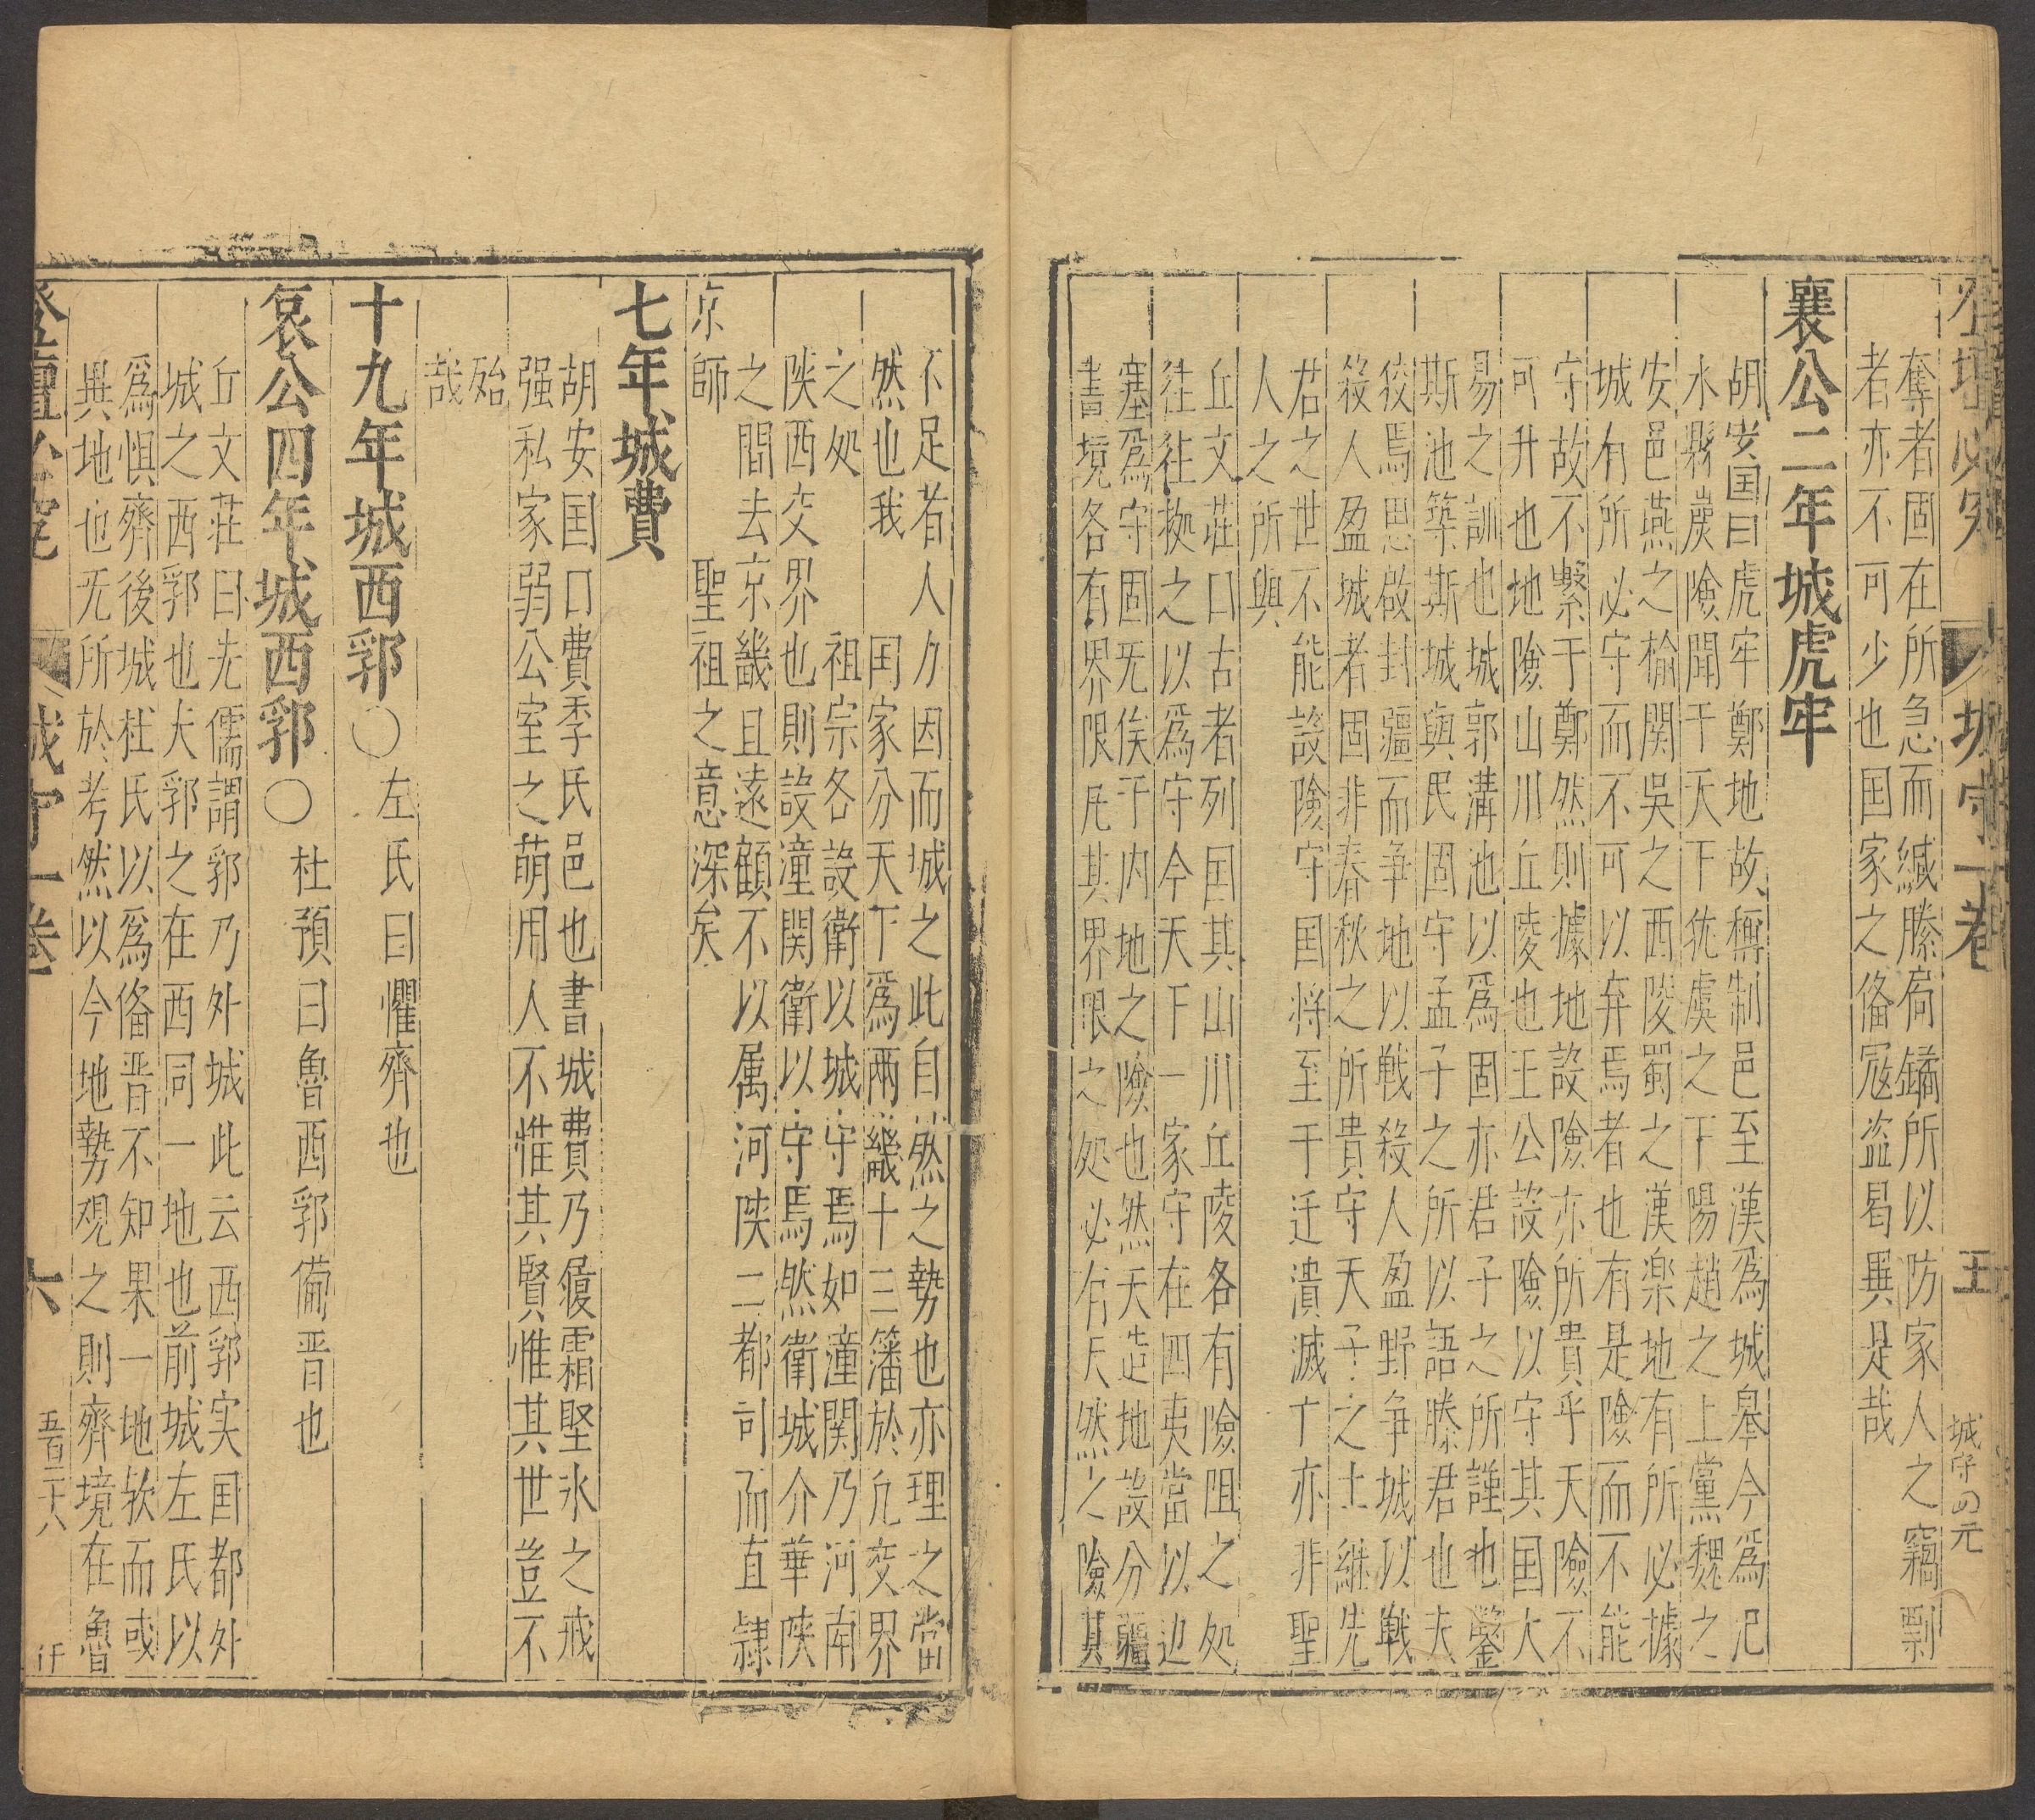 登壇必究 城守一卷 五 城守
奪者固在所急而緘縢扃鐍所以防家人之竊剽
者亦不可少也囯家之俻冦盗曷異是哉
襄公二年城虎牢
胡安囯曰虎牢鄭地故稱制邑至漢爲城皋今爲汜
水縣巖險聞于天下犹虞之下陽趙之上黨魏之
安邑燕之榆関吳之西陵蜀之漢楽地有所必據
城有所必守而不可以弃焉者也有是險而不能
守故不繫于鄭然則據地設險亦所貴乎天險不
可升也地險山川丘陵也王公設險以守其囯大
易之訓也城郭溝池以爲固亦君子之所謹也鑿
斯池築斯城與民固守孟子之所以語滕君也夫
狡焉思啟封疆而争地以戦殺人盈野争城以戦
殺人盈城者固非春秋之所貴守天子之土継先
君之世不能設險守囯将至于迁潰滅亡亦非聖
人之所與
丘文莊曰古者列囯其山川丘陵各有險阻之处
往往拠之以爲守今天下一家守在四夷當以边
塞爲守固无俟于内地之險也然天造地設分疆
畫境各有界限凡其界限之处必有天然之險其
不足者人力因而城之此自然之勢也亦理之當
然也我 囯家分天下爲兩畿十三籓於凢交界
之处 祖宗各設衛以城守焉如潼関乃河南
陜西交界也則設潼関衛以守焉然衛城介華陜
之間去京畿且遠顧不以属河陜二都司而直隷
京師 聖祖之意深矣
七年城費
胡安囯曰費季氏邑也書城費乃履霜堅氷之戒
强私家弱公室之萌用人不惟其賢惟其世豈不
殆哉
十九年城西郛○左氏曰懼齊也
哀公四年城西郛○杜預曰魯西郛俻晋也
丘文莊曰先儒謂郛乃外城此云西郛实囯都外
城之西郛也夫郛之在西同一地也前城左氏以
爲惧齊後城杜氏以爲俻晋不知果一地欤而或
異地也无所於考然以今地勢覌之則齊境在魯
登壇必究 城守一卷 六 五百二十八